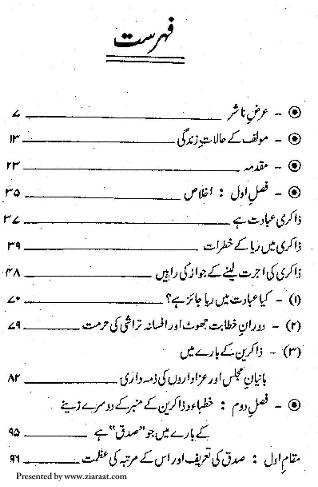 فہرست
⦿ - عرضِ ناشر ۷
⦿ - مؤلف کے حالات زندگی ۱۳
⦿ - مقدمہ ۲۳
⦿ - فصلِ اول : اخلاص ۳۵
ذاکری عبادت ہے ۳۷
ذاکری میں ریا کے خطرات ۳۹
ذاکری کی اجرت لینے کے جواز کی راہیں ۴۸
(۱) - کیا عبادت میں ریا جائز ہے؟ ۷۰
(۲) - دورانِ خطابت جھوٹ اور افسانہ تراشی کی حرمت ۷۹
(۳) - ذاکرین کے بارے میں
بانیانِ مجلس اور عزاداروں کی ذمہ داری ۸۲
⦿ - فصلِ دوم : خطباء و ذاکرین کے منبر کے دوسرے زینے
کے بارے میں جو "صدق" ہے ۹۵
مقامِ اول : صدق کی تعریف اور اس کے مرتبہ کی عظمت ۹۶
Presented by www.ziaraat.com